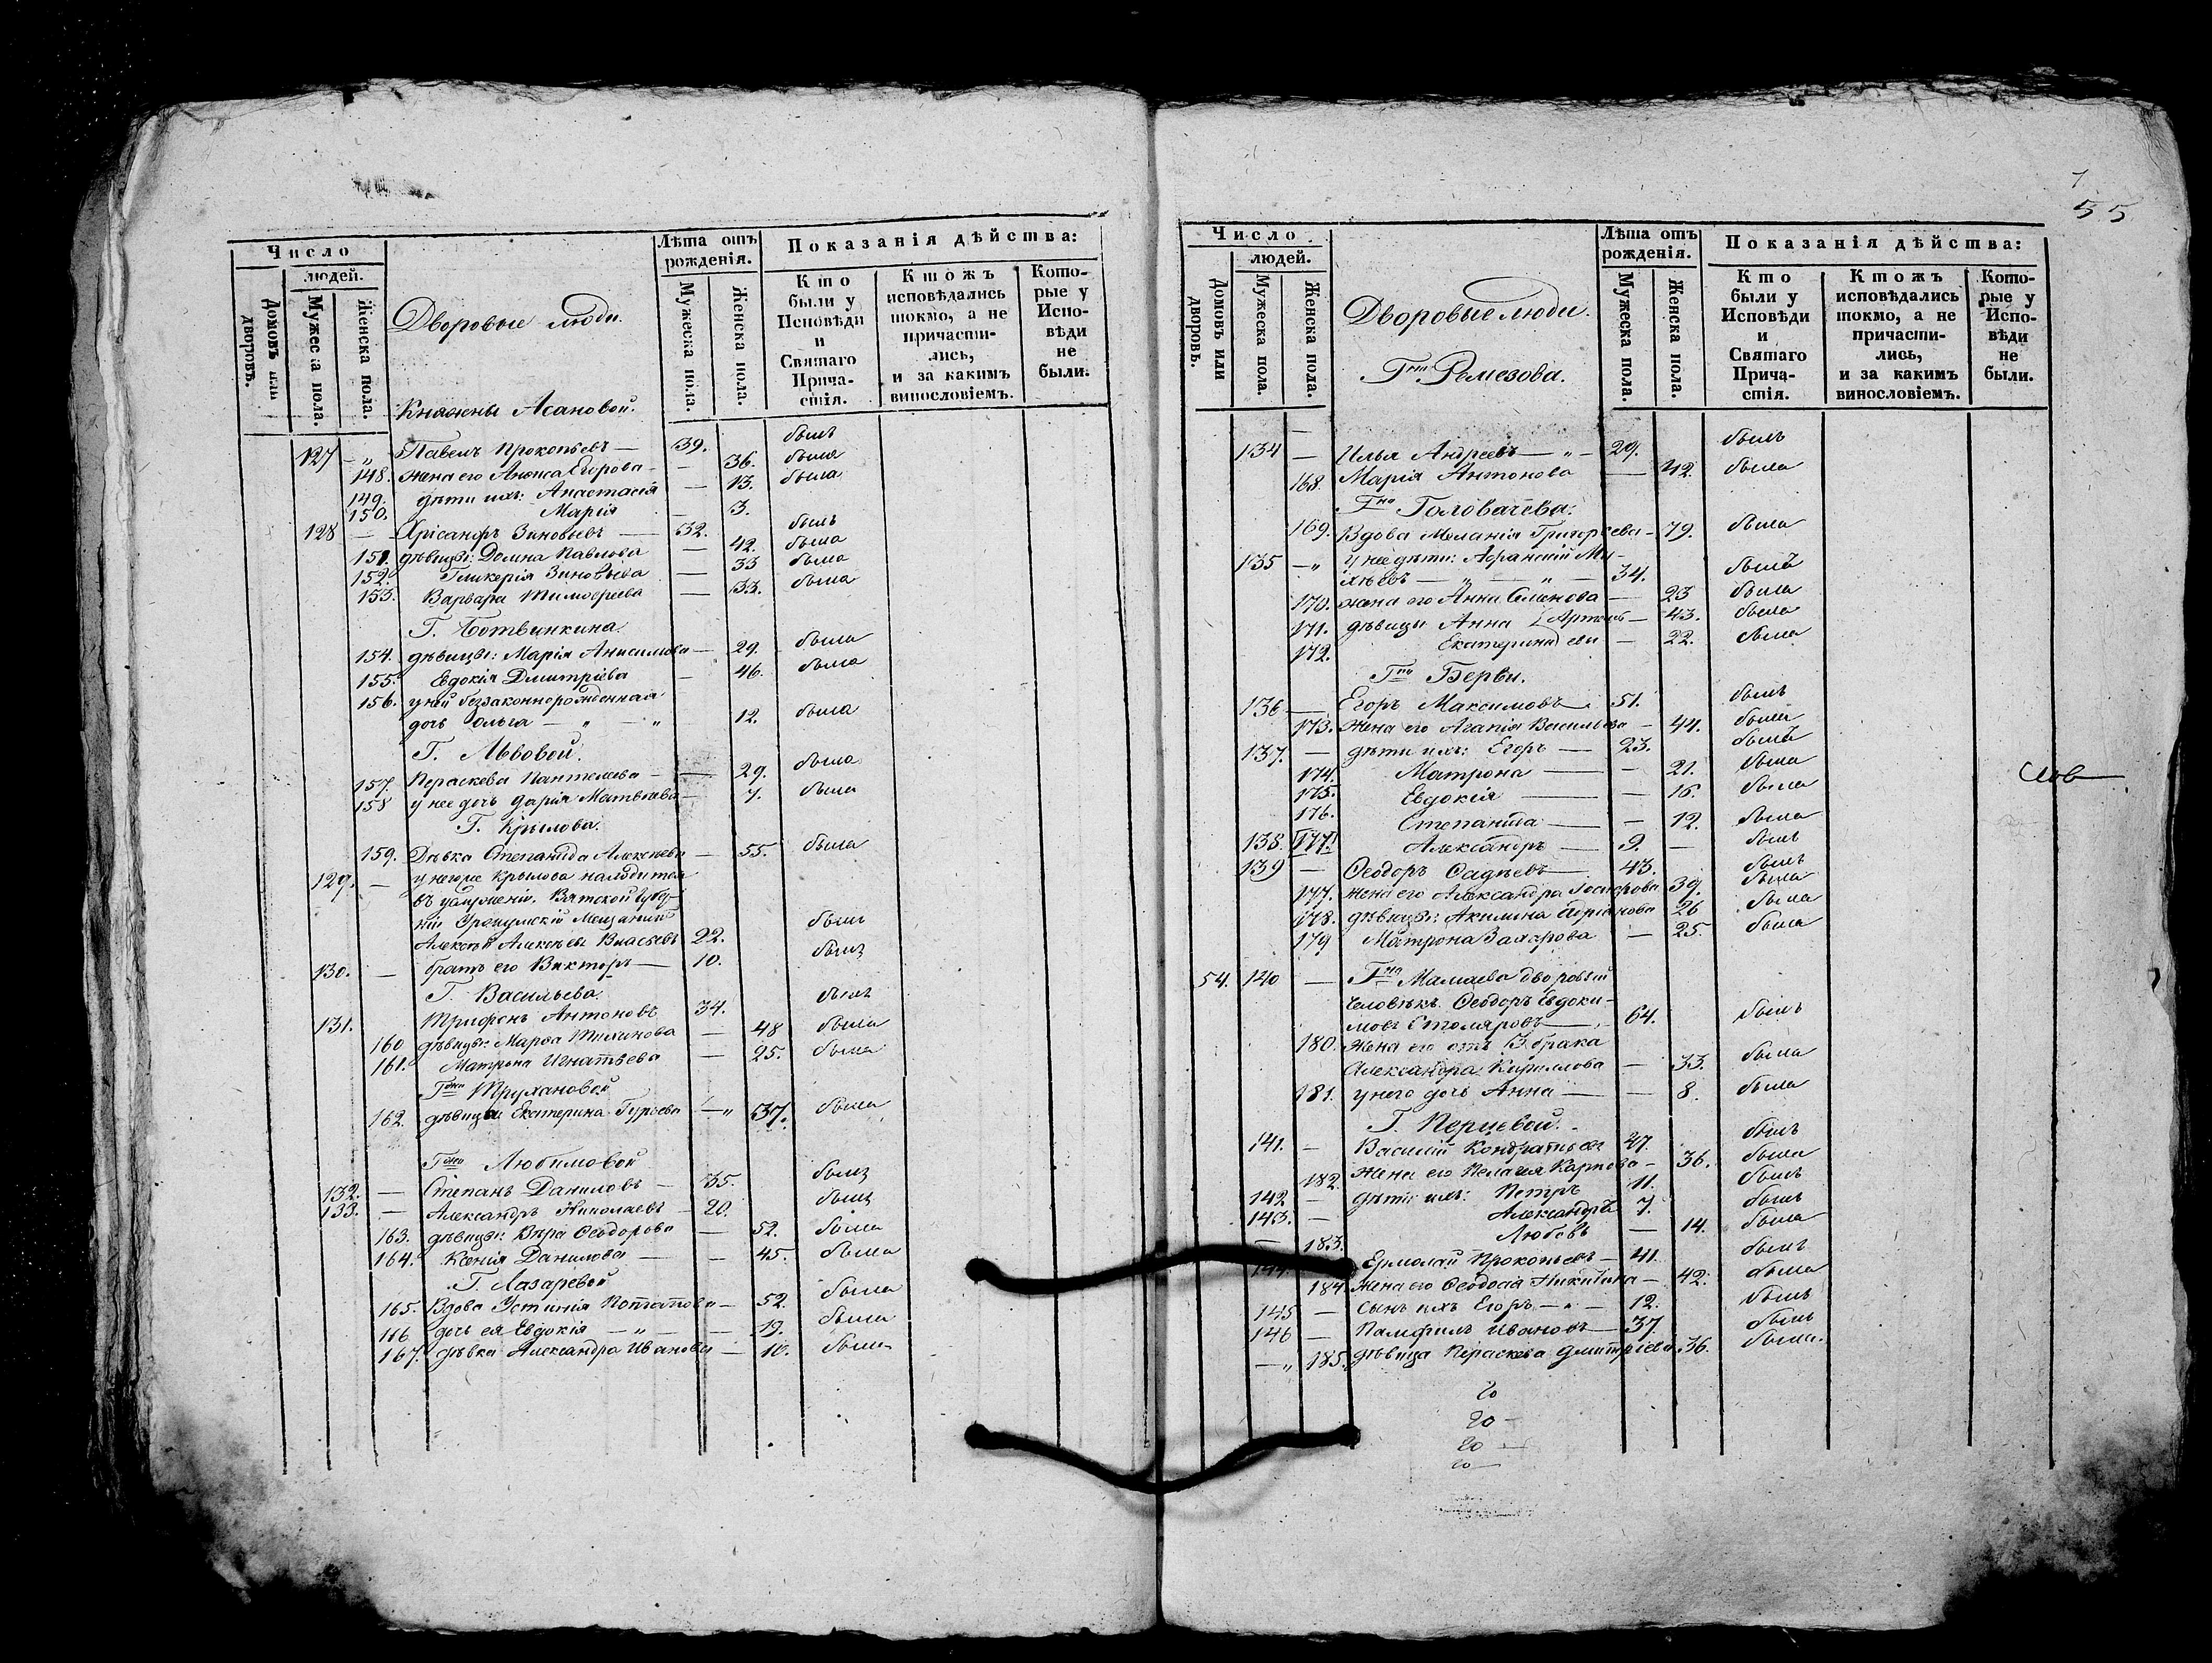 Число
людей.
Домовъ или дворовъ.
Мужеска пола.
Женска пола.
Дворовые люди.
Княжны Асановой.
Лѣта отъ рожденія.
Мужеска пола.
Женска пола.
Показанія дѣйства:
Кто были у Исповѣди и Святаго Причастія.
Ктожъ исповѣдались токмо, а не причастились, и за какимъ винословіемъ.
Которые у Исповѣди не были.
127 — „ Павелъ Прокопьевъ — 39. былъ
148. жена его Анѳиса Егорова — 36. была
149. дѣти ихъ: Анастасія — 13. была
150. Марія — 3.
128 — Хрісанфъ Зиновьевъ — 32. былъ
151. дѣвицы: Домна Павлова — 42. была
152. Гликерія Зиновьева — 33 была
153. Варвара Тимоѳеева — 33. была
Г. Ботвинкина.
154. дѣвицы: Марія Анисимова — 29. была
155. Евдокія Дмитріева — 46. была
156. у ней беззаконнорожденная
дочь Ольга — „ — „ 12. была
Г. Львовой.
157. Параскева Пантелеева — 29. была
158 у нее дочь Дарія Матвѣева — 7. была
Г. Крылова.
159. Дѣвка Степанида Алексѣева — 55. была
129. — у негоже Крылова находится
въ услуженіи, Вятской Губер-
ніи Уржумскій Мещанинъ
Алексѣй Алексѣевъ Власовъ 22. былъ
130. — братъ его Викторъ — 10. былъ
Г. Васильева.
131. Трифонъ Антоновъ 34. былъ
160 дѣвицы: Марѳа Тихинова — 48 была
161. Матрона Игнатьева — 25. была
Гжи Трухановой
162. дѣвица Екатерина Гурьева — „ 37. была
Гжи Любимовой
132. — Степанъ Даниловъ — 35. былъ
133. — Александръ Николаевъ — 20. былъ
163. дѣвицы: Вѣра Ѳеодорова — 52. была
164. Ксенія Данилова — 45. была
Г. Лазаревой
165. Вдова Устинія Потапова — 52. была
166 дочь ея Евдокія — „ — 19. была
167. дѣвка Александра Иванова — 10. была
55
Число
людей.
Домовъ или дворовъ.
Мужеска пола.
Женска пола.
Дворовые люди.
Гна Ремезова.
Лѣта отъ рожденія.
Мужеска пола.
Женска пола.
Показанія дѣйства:
Кто были у Исповѣди и Святаго Причастія.
Ктожъ исповѣдались токмо, а не причастились, и за какимъ винословіемъ.
Которые у Исповѣди не были.
134 — Илья Андреевъ — „ — 29. былъ
168. Марія Антонова — 42. была
Гна Головачева:
169. Вдова Меланія Григорьева — 79. была
135 — „ у нее дѣти: Афанасій Ми-
хѣевъ — „ — „ — 34. былъ
170. жена его Анна Семенова — 23 была
171. дѣвицы Анна — 43. была
172. Екатерина — 22. была
Гна Берви.
136 — Егоръ Максимовъ — 51. былъ
173. Жена его Агапія Васильева — 44. была
137. — дѣти ихъ: Егоръ — 23. былъ
174. Матрона — 21. была
175. Евдокія — 16. была
176. Степанида — 12. была
138. 177. Александръ — 9. — былъ
139 — Ѳеодоръ — 43. былъ
177. Жена его Александра 39. была
178. дѣвицы: Акилина 26 была
179 Матрона Захарова — 25. была
54. 140 — Гна Мамаева дворовый
человѣкъ Ѳеодоръ Евдоки-
мовъ Столяровъ — 64. былъ
180. Жена его отъ 2 брака
Александра Кирилова — 33. была
181. у него дочь Анна — 8. была
Г. Перцевой.
141. — Василій Кондратьевъ 47. былъ
182. Жена его Пелагея Карпова — 36. была
142 — дѣти ихъ: Петръ 11. былъ
143. — Александръ 7. былъ
— 183. Любовь — 14. была
144. Ермолай Прокопьевъ — 41. былъ
184. Жена его Ѳеодосія Никитина — 42. была
145 — сынъ ихъ Егоръ — „ — 12. былъ
146 — Памфилъ Ивановъ — 37. былъ
— „ 185. дѣвица Параскева Дмитріева. 36. была.